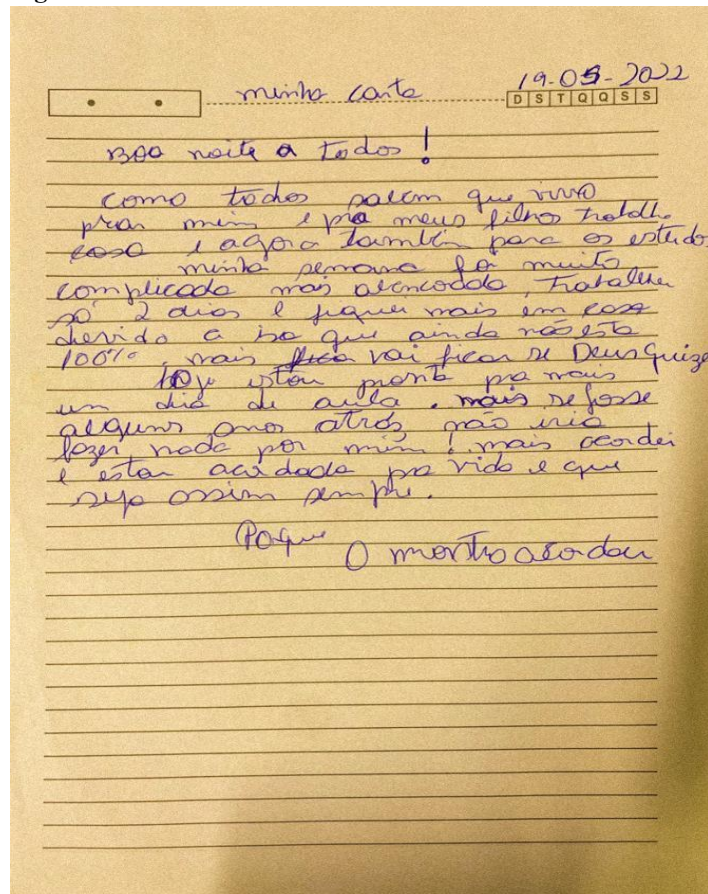 minha carta 19-05-2022
D S T Q Q S S
Boa noite a todos!
como todos sabem que vivo
pra mim e pra meus filhos trabalho
casa e agora também para os estudos
minha semana foi muito
complicada mas abençoada, trabalhei
só 2 dias e fiquei mais em casa
devido a iso que ainda não esta
100%, mais vai ficar se Deus quize
Hoje estou pronta pra mais
um dia de aula. mais se fosse
alguns anos atrás não iria
fazer nada por mim! mais acordei
e estou acordada pra vida e que
seja assim sempre.
Porque O monstro acordou